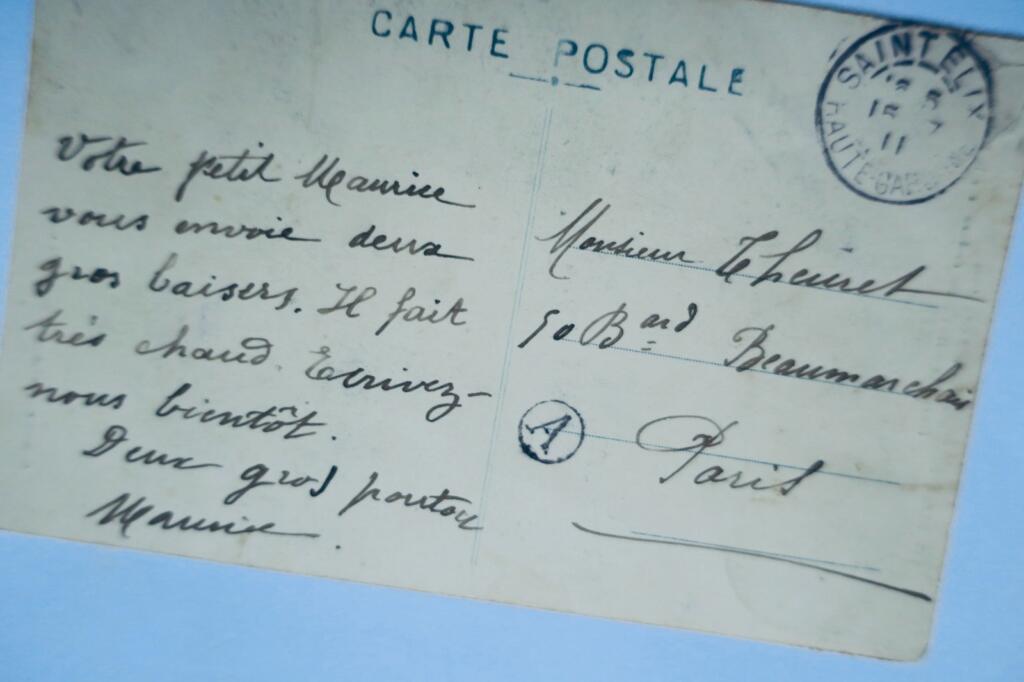 CARTE POSTALE
SAINT ELIX
HAUTE-GARONNE
11
Votre petit Maurice
vous envoie deux
gros baisers. Il fait
très chaud. Ecrivez-
nous bientôt.
Deux gros poutou
Maurice.
Monsieur
50 Bard Beaumarchais
A
Paris